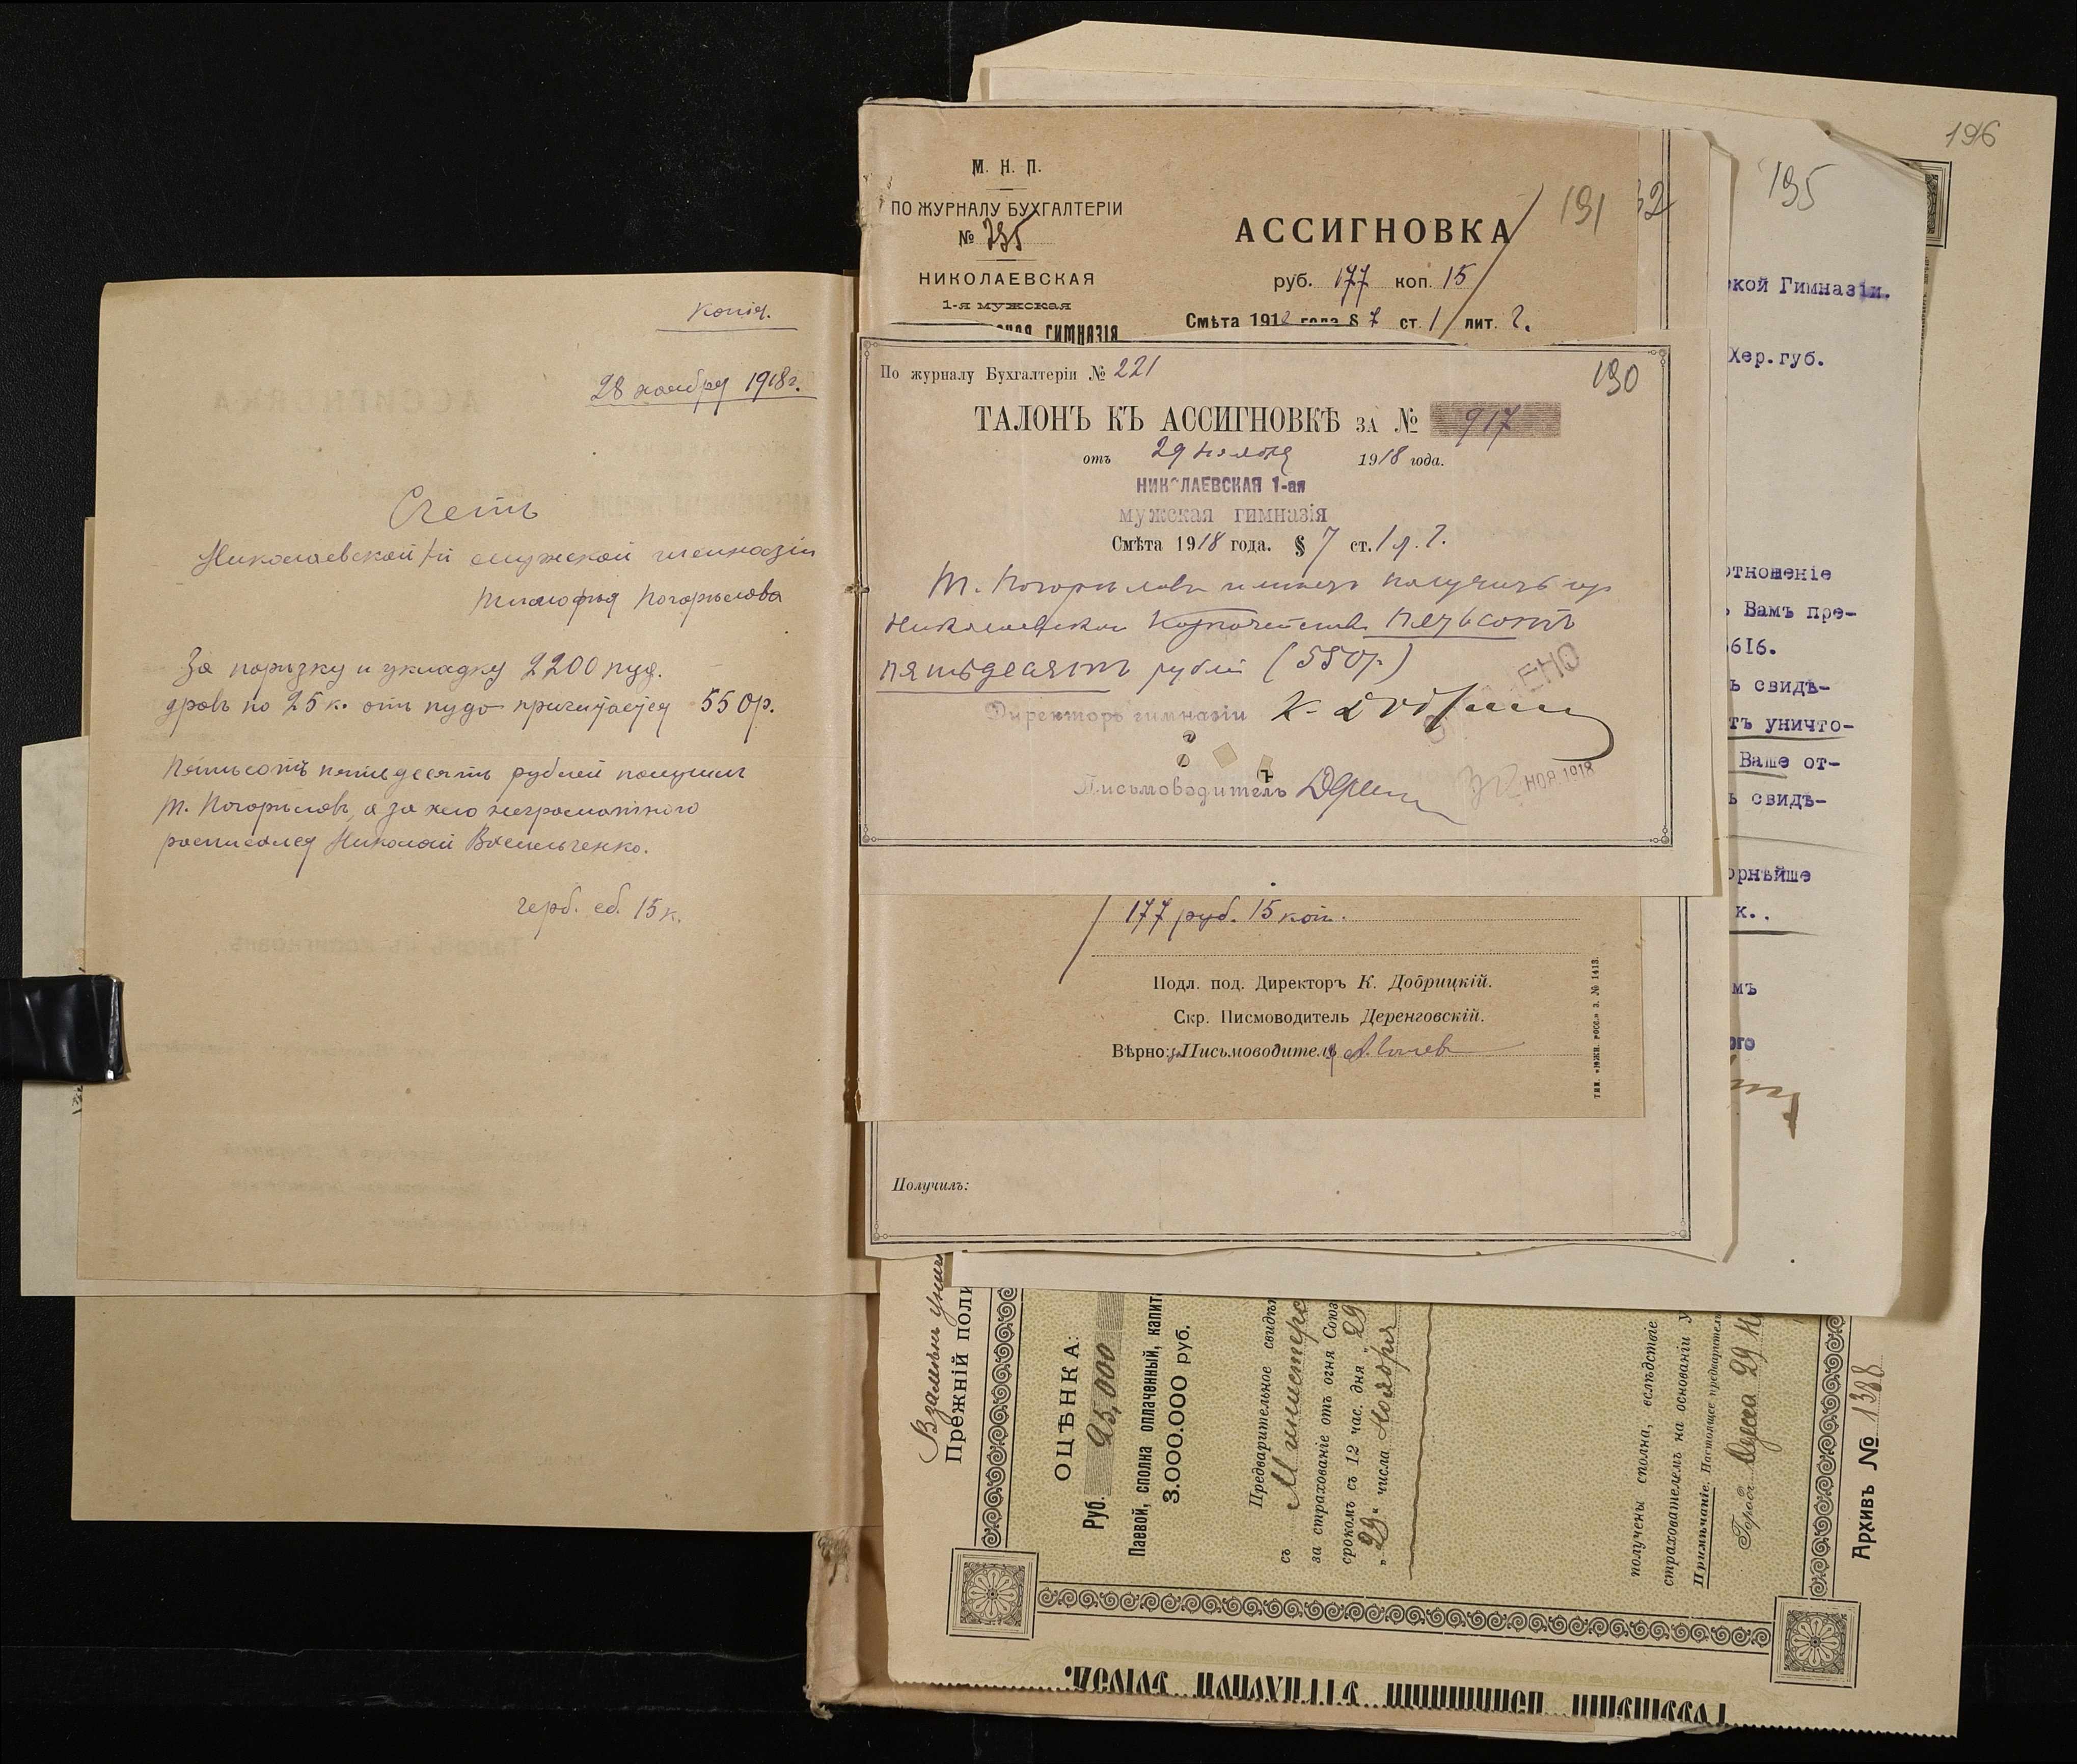 Копія.
28 ноября 1918 г.
Счетъ
Николаевской 1-й мужской гимназіи
Тимофѣя Погорѣлова
За порѣзку и укладку 2200 пуд.
дровъ по 25 к. отъ пуда причитается 550 р.
Пятьсотъ пятьдесятъ рублей получилъ
Т. Погорѣловъ, а за него неграмотнаго
росписался Николай Васильченко.
герб. сб. 15 к.
196
195
М. Н. П.
ПО ЖУРНАЛУ БУХГАЛТЕРІИ
№ 235
НИКОЛАЕВСКАЯ
1-я мужская
гимназія
АССИГНОВКА
191
руб. 177 коп. 15
Смѣта 1918 года § 7 ст. 1 лит. 2.
По журналу Бухгалтеріи № 221
190
ТАЛОНЪ КЪ АССИГНОВКѢ ЗА № 917
отъ 29 ноября 1918 года.
НИКОЛАЕВСКАЯ 1-ая
мужская гимназія
Смѣта 1918 года. § 7 ст. 1 л. 2.
Т. Погорѣловъ имѣетъ получить изъ
Николаевскаго Казначейства пятьсотъ
пятьдесятъ рублей (550 р.)
Директоръ гимназіи
Письмоводитель
НОЯ 1918
177 руб. 15 коп.
Подл. под. Директоръ К. Добрицкій.
Скр. Писмоводитель Деренговскій.
Вѣрно: за Письмоводителя
тип. «южн. росс.» з. № 1413.
Получилъ:
ской Гимназіи.
Хер.губ.
отношеніе
ъ Вамъ пре-
616.
ъ свидѣ-
тъ уничто-
Ваше от-
ъ свидѣ-
орнѣйше
к..
мъ
ого
Взамѣнъ
Прежній поли
ОЦѢНКА:
Руб. 25,000
Паевой, сполна оплаченный, капит
3.000.000 руб.
Предварительное свидѣ
съ Министерс
за страхованіе отъ огня Союз
срокомъ съ 12 час. дня „29
„29“ числа Ноября
получены сполна, вслѣдствіе
страхователемъ на основаніи У
Примѣчаніе. Настоящее предварительн
Городъ Одесса 29 Н
Архивъ № 1388